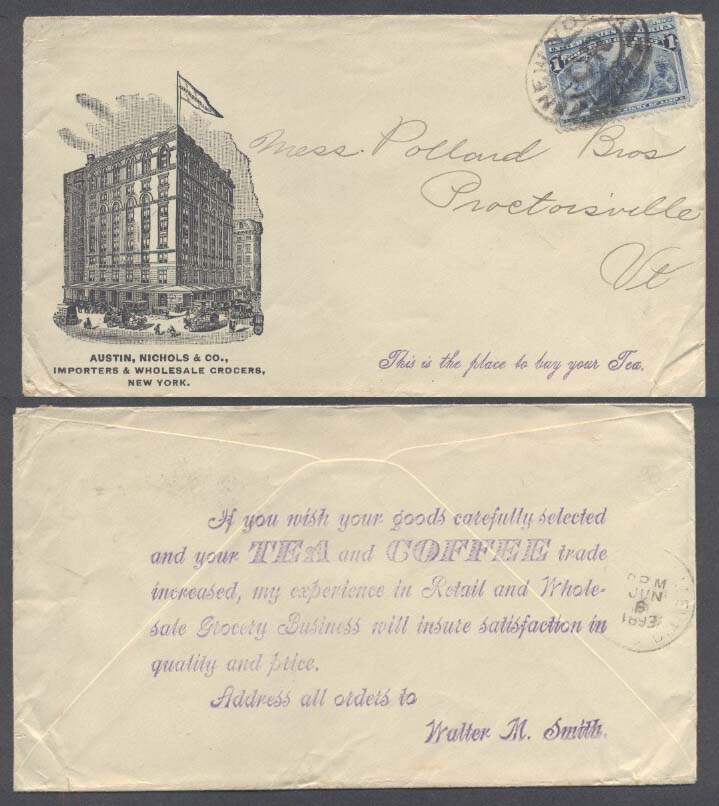 NEW YORK
1 1
Mess. Pollard Bros
Proctorsville
Vt
AUSTIN, NICHOLS & CO.,
IMPORTERS & WHOLESALE GROCERS,
NEW YORK.
This is the place to buy your Tea.
If you wish your goods carefully selected
and your TEA and COFFEE trade
increased, my experience in Retail and Whole-
sale Grocery Business will insure satisfaction in
quality and price.
Address all orders to
Walter M. Smith.
PM
JUN
1893